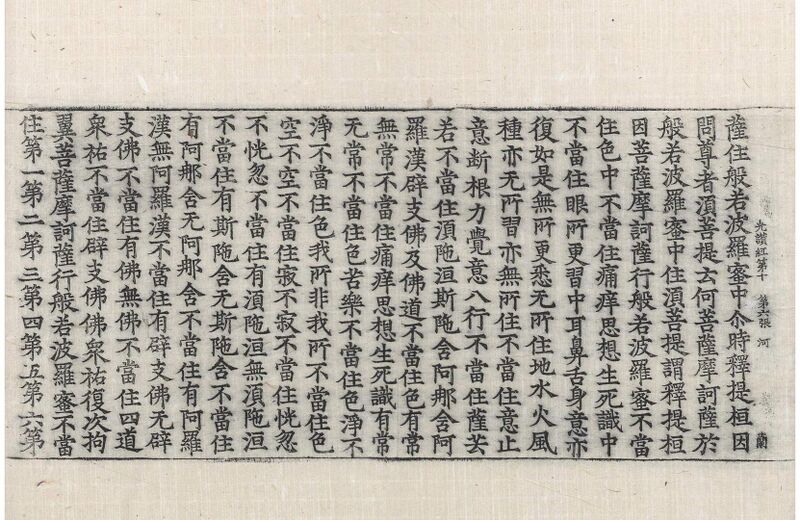 光讃經第十 第六張 河 蘭
薩住般若波羅蜜中尒時釋提桓因
問尊者湏菩提云何菩薩摩訶薩於
般若波羅蜜中住湏菩提謂釋提桓
因菩薩摩訶薩行般若波羅蜜不當
住色中不當住痛痒思想生死識中
不當住眼所更習中耳鼻舌身意亦
復如是無所更悉无所住地水火風
種亦无所習亦無所住不當住意止
意断根力覺意八行不當住薩芸
若不當住湏陁洹斯陁含阿那含阿
羅漢辟支佛及佛道不當住色有常
無常不當住痛痒思想生死識有常
无常不當住色苦樂不當住色淨不
淨不當住色我所非我所不當住色
空不空不當住寂不寂不當住恍忽
不恍忽不當住有湏陁洹無湏陁洹
不當住有斯陁含无斯陁含不當住
有阿那含无阿那含不當住有阿羅
漢無阿羅漢不當住有辟支佛无辟
支佛不當住有佛無佛不當住四道
衆祐不當住辟支佛佛衆祐復次拘
翼菩薩摩訶薩行般若波羅蜜不當
住第一第二第三第四第五第六第